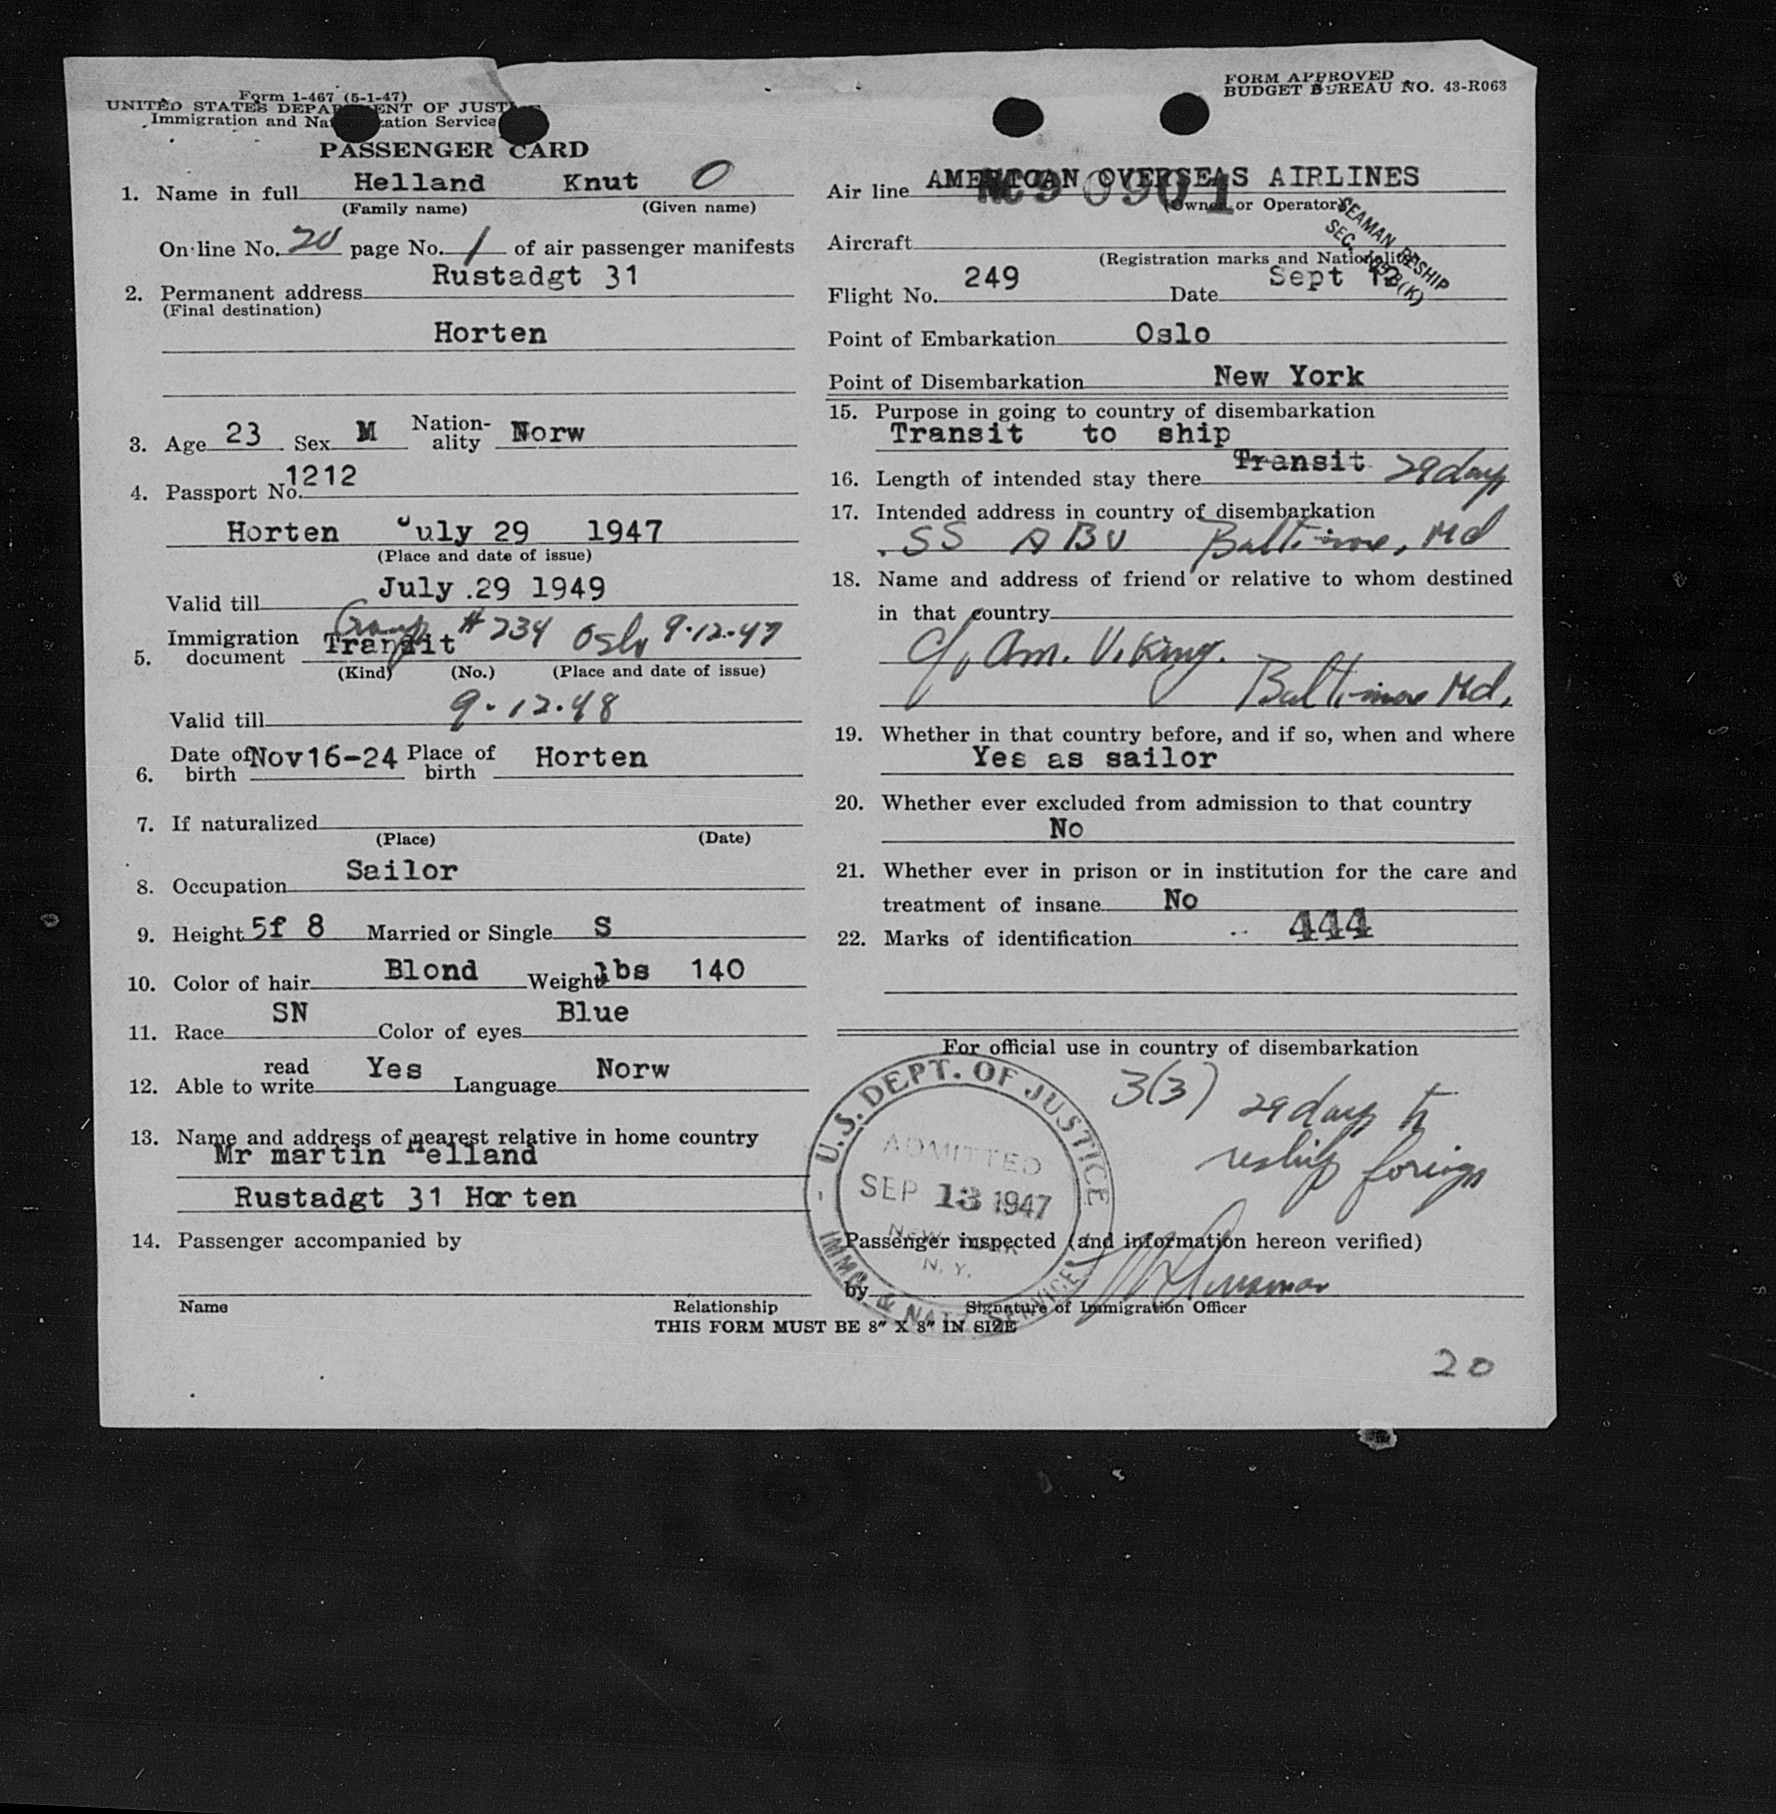 Form 1-467 (5-1-47)
UNITED STATES DEPARTMENT OF JUSTICE
Immigration and Naturalization Service
PASSENGER CARD
1. Name in full Helland Knut O
(Family name) (Given name)
On line No. 20 page No. 1 of air passenger manifests
2. Permanent address Rustadgt 31
(Final destination)
Horten
3. Age 23 Sex M Nation-ality Norw
4. Passport No. 1212
Horten July 29 1947
(Place and date of issue)
Valid till July .29 1949
5. Immigration document Transit Group # 234 Oslo 9.12.47
(Kind) (No.) (Place and date of issue)
Valid till 9.12.48
6. Date of birth Nov16-24 Place of birth Horten
7. If naturalized
(Place) (Date)
8. Occupation Sailor
9. Height 5f 8 Married or Single S
10. Color of hair Blond Weight lbs 140
11. Race SN Color of eyes Blue
12. Able to read write Yes Language Norw
13. Name and address of nearest relative in home country
Mr martin Helland
Rustadgt 31 Horten
14. Passenger accompanied by
Name Relationship
THIS FORM MUST BE 8" X 8" IN SIZE
FORM APPROVED
BUDGET BUREAU NO. 43-R063
Air line AMERICAN OVERSEAS AIRLINES
(Owner or Operator)
90901
SEAMAN RESHIP
Aircraft
(Registration marks and Nationality)
Flight No. 249 Date Sept 12
Point of Embarkation Oslo
Point of Disembarkation New York
15. Purpose in going to country of disembarkation
Transit to ship
16. Length of intended stay there Transit 29 days
17. Intended address in country of disembarkation
SS ABU Baltimore, Md
18. Name and address of friend or relative to whom destined
in that country
c/o Am. Viking.
Baltimore Md.
19. Whether in that country before, and if so, when and where
Yes as sailor
20. Whether ever excluded from admission to that country
No
21. Whether ever in prison or in institution for the care and
treatment of insane No
22. Marks of identification 444
For official use in country of disembarkation
3(3) 29 days to
reship foreign
U.S. DEPT. OF JUSTICE
ADMITTED
SEP 13 1947
NEW YORK
N. Y.
IMMG. & NATZ. SERVICE
Passenger inspected (and information hereon verified)
by
Signature of Immigration Officer
20